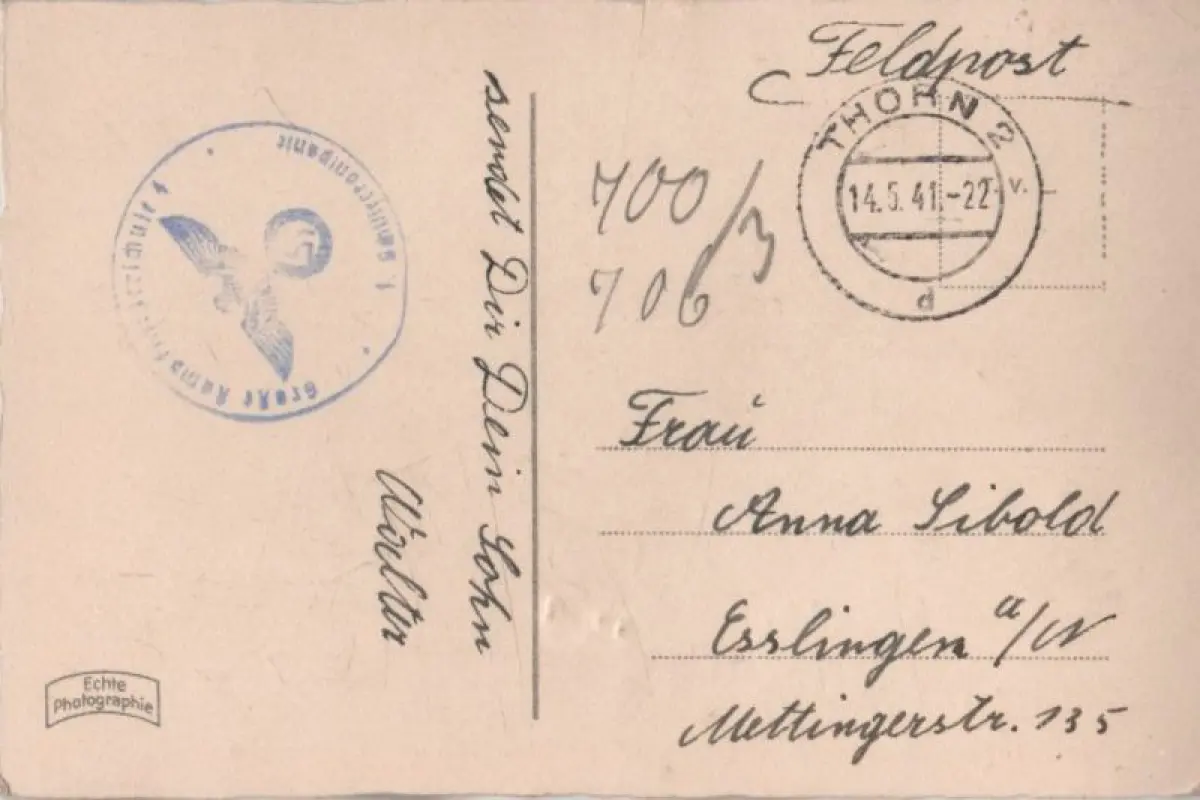 Feldpost
THORN 2
14.5.41.-22
v.
d
700/3
706
Frau
Anna Sibold
Esslingen a/N
Mettingerstr. 135
sendet Dir Dein Sohn
Walter
Echte
Photographie